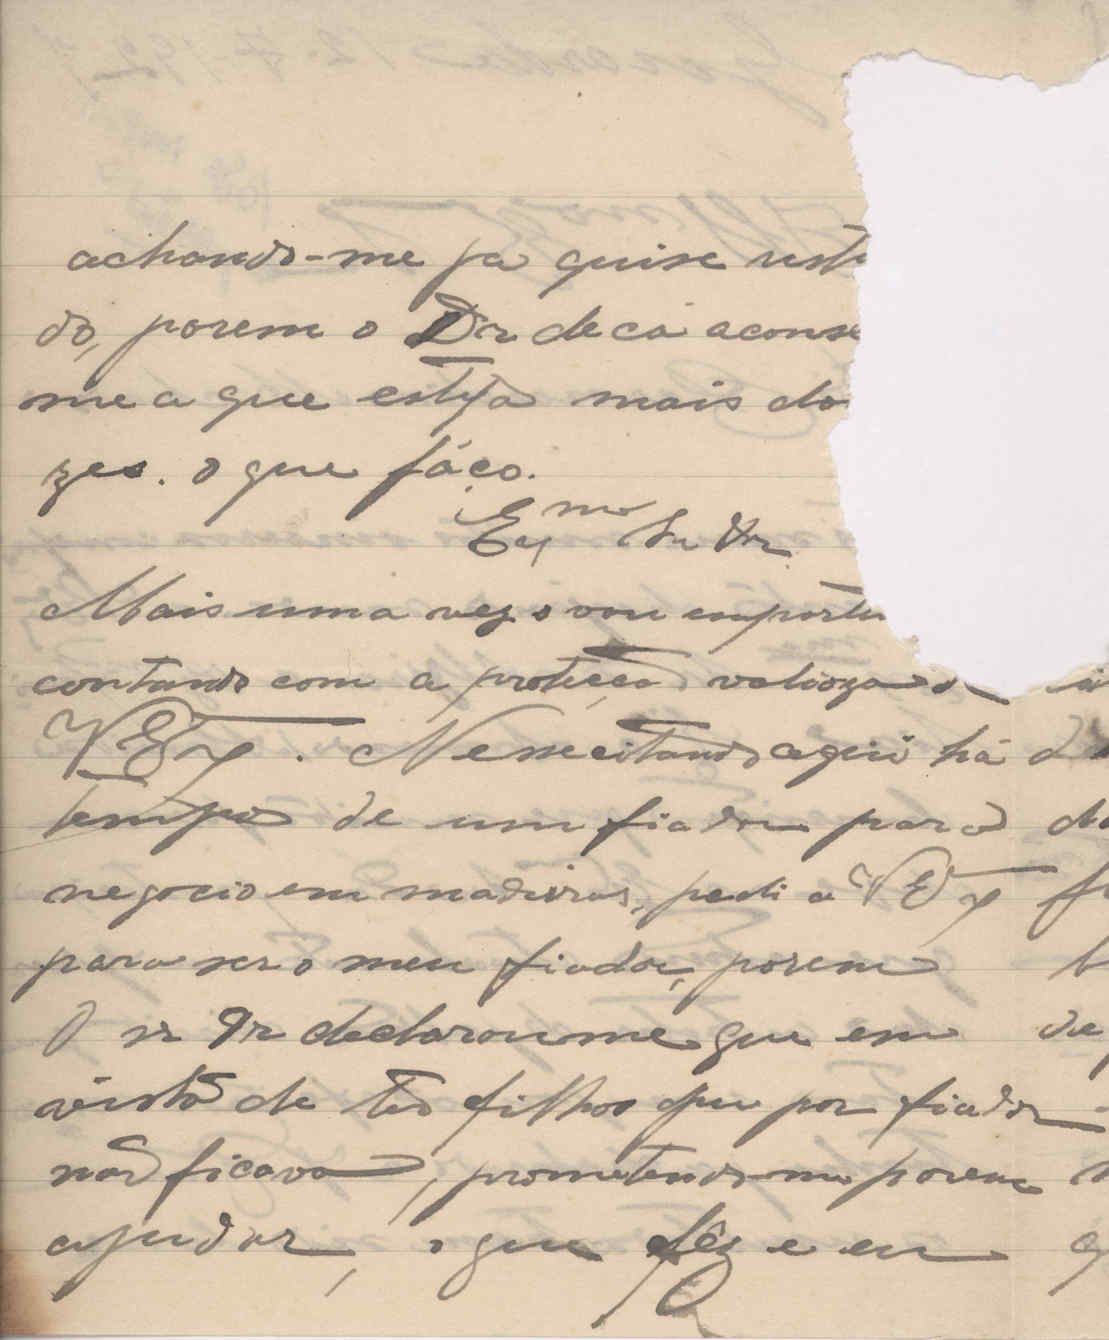 achando-me ja quise
do, porem o Dr de cá aconse
me a que esteja mais do
zes. o que fáço.
Exmo Sr Dr
Mais uma vez o vou emportu
contando com a proteção valioza de
VEx. Nessecitando aqui há
tempo de um fiador para
negocio em madeiras, pedi a VEx
para ser o meu fiador, porem
O sr Dr declarou-me que em
vista de ter filhos que por fiador
não ficava, prometendo-me porem
ajudar, o que fêz e eu